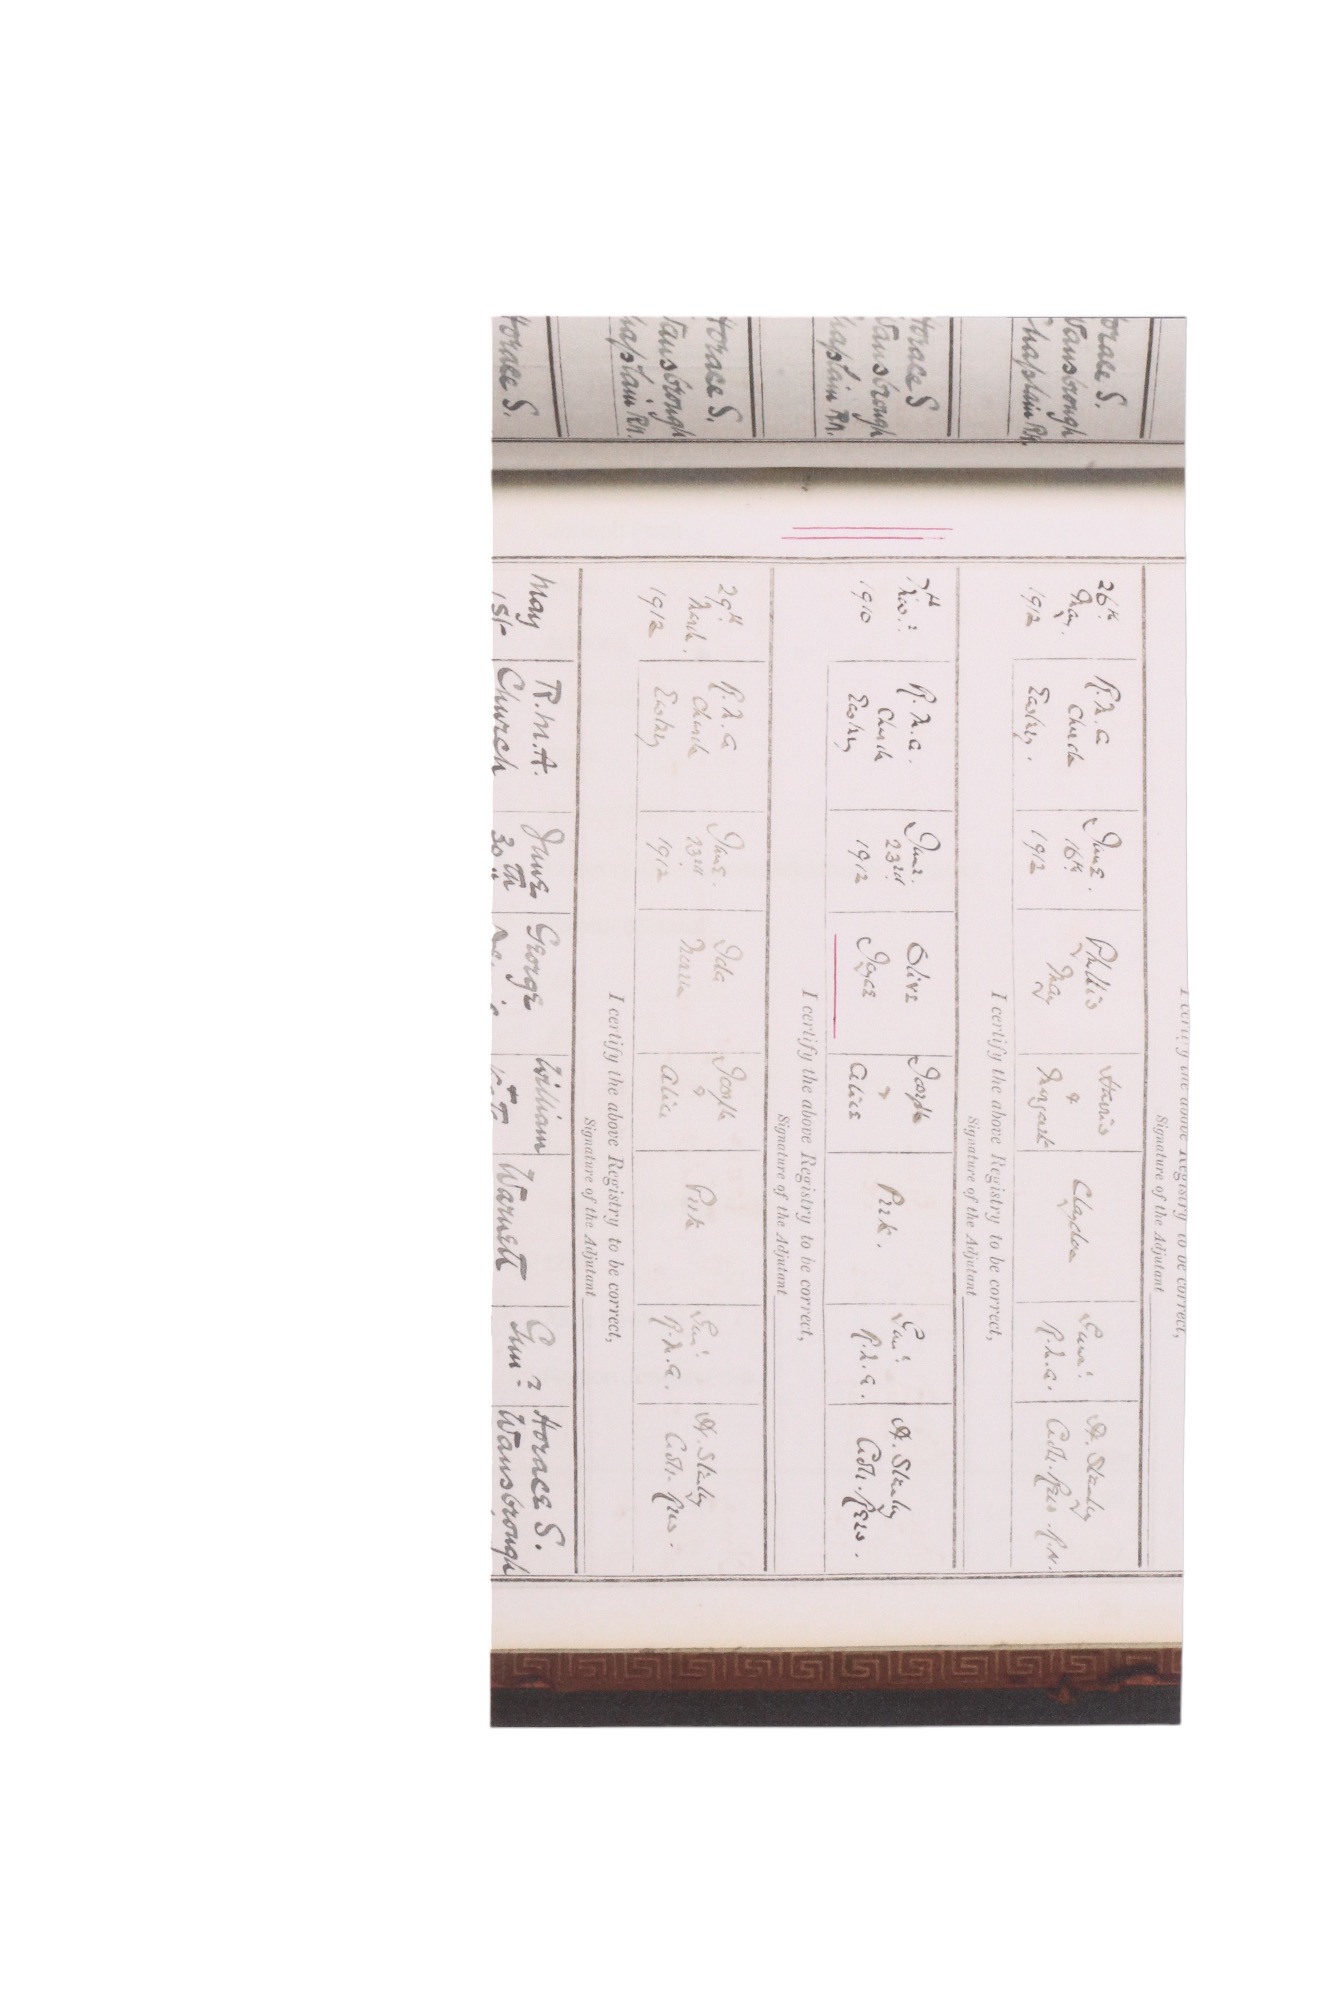 Horace S.
Wansbrough
Chaplain RN.
Horace S
Wansbrough
Chaplain Rn.
Horace S.
Wansbrough
Chaplain Rn.
Horace S.
I certify the above Registry to be correct,
Signature of the Adjutant
26th
May.
1912
R.M.A
Church
Eastney.
June.
16th
1912
Phyllis
May
Harris
&
Margaret
Claydon
Gunr.
R.M.A.
A. Stanley
R.N.
I certify the above Registry to be correct,
Signature of the Adjutant
7th
1910
R.M.A.
Church
Eastney
June.
23rd
1912
Olive
Joyce
Joseph
&
Alice
Pirk.
Gnr.
R.M.A.
A. Stanley
I certify the above Registry to be correct,
Signature of the Adjutant
29th
March.
1912
R.M.A
Church
Eastney
June.
23rd
1912
Ida
Joseph
&
Alice
Pirk
Gnr.
R.M.A.
A. Stanley
I certify the above Registry to be correct,
Signature of the Adjutant
May
1st
R.M.A.
Church
June
30th
George
William
Warnett
Gunr
Horace S.
Wansbrough